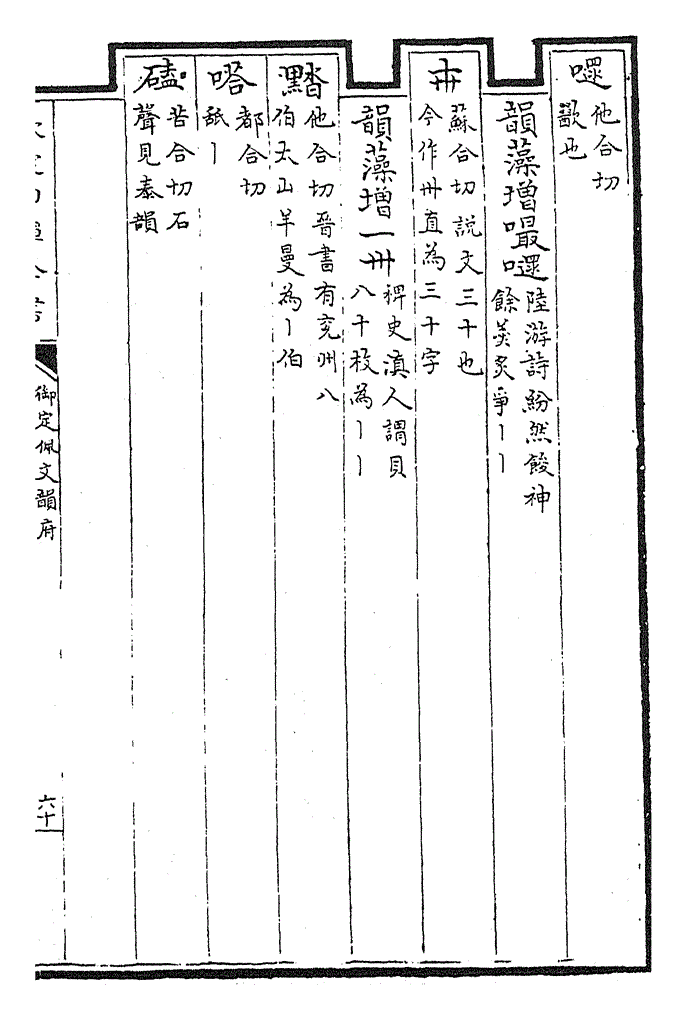 嚃他合切
歠也
韻藻增嘬嚃陸游詩紛然餕神
餘羹炙爭丨丨
𠦃蘇合切説文三十也
今作卅直為三十字
韻藻增一卅稗史滇人謂貝
八十枚為丨丨
䵬他合切晉書有兗州八
伯太山羊曼為丨伯
嗒都合切
舐丨
磕苦合切石
聲見泰韻
欽定四庫全書
御定佩文韻府
六十